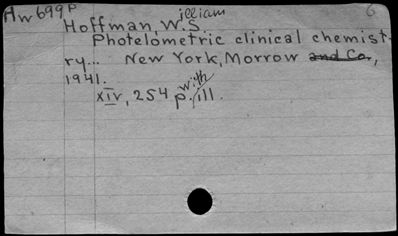 Aw699P 6
Hoffman, William S.
Photelometric clinical chemist-
ry... New York, Morrow and Co.,
1941.
xiv, 254 p. with ill.